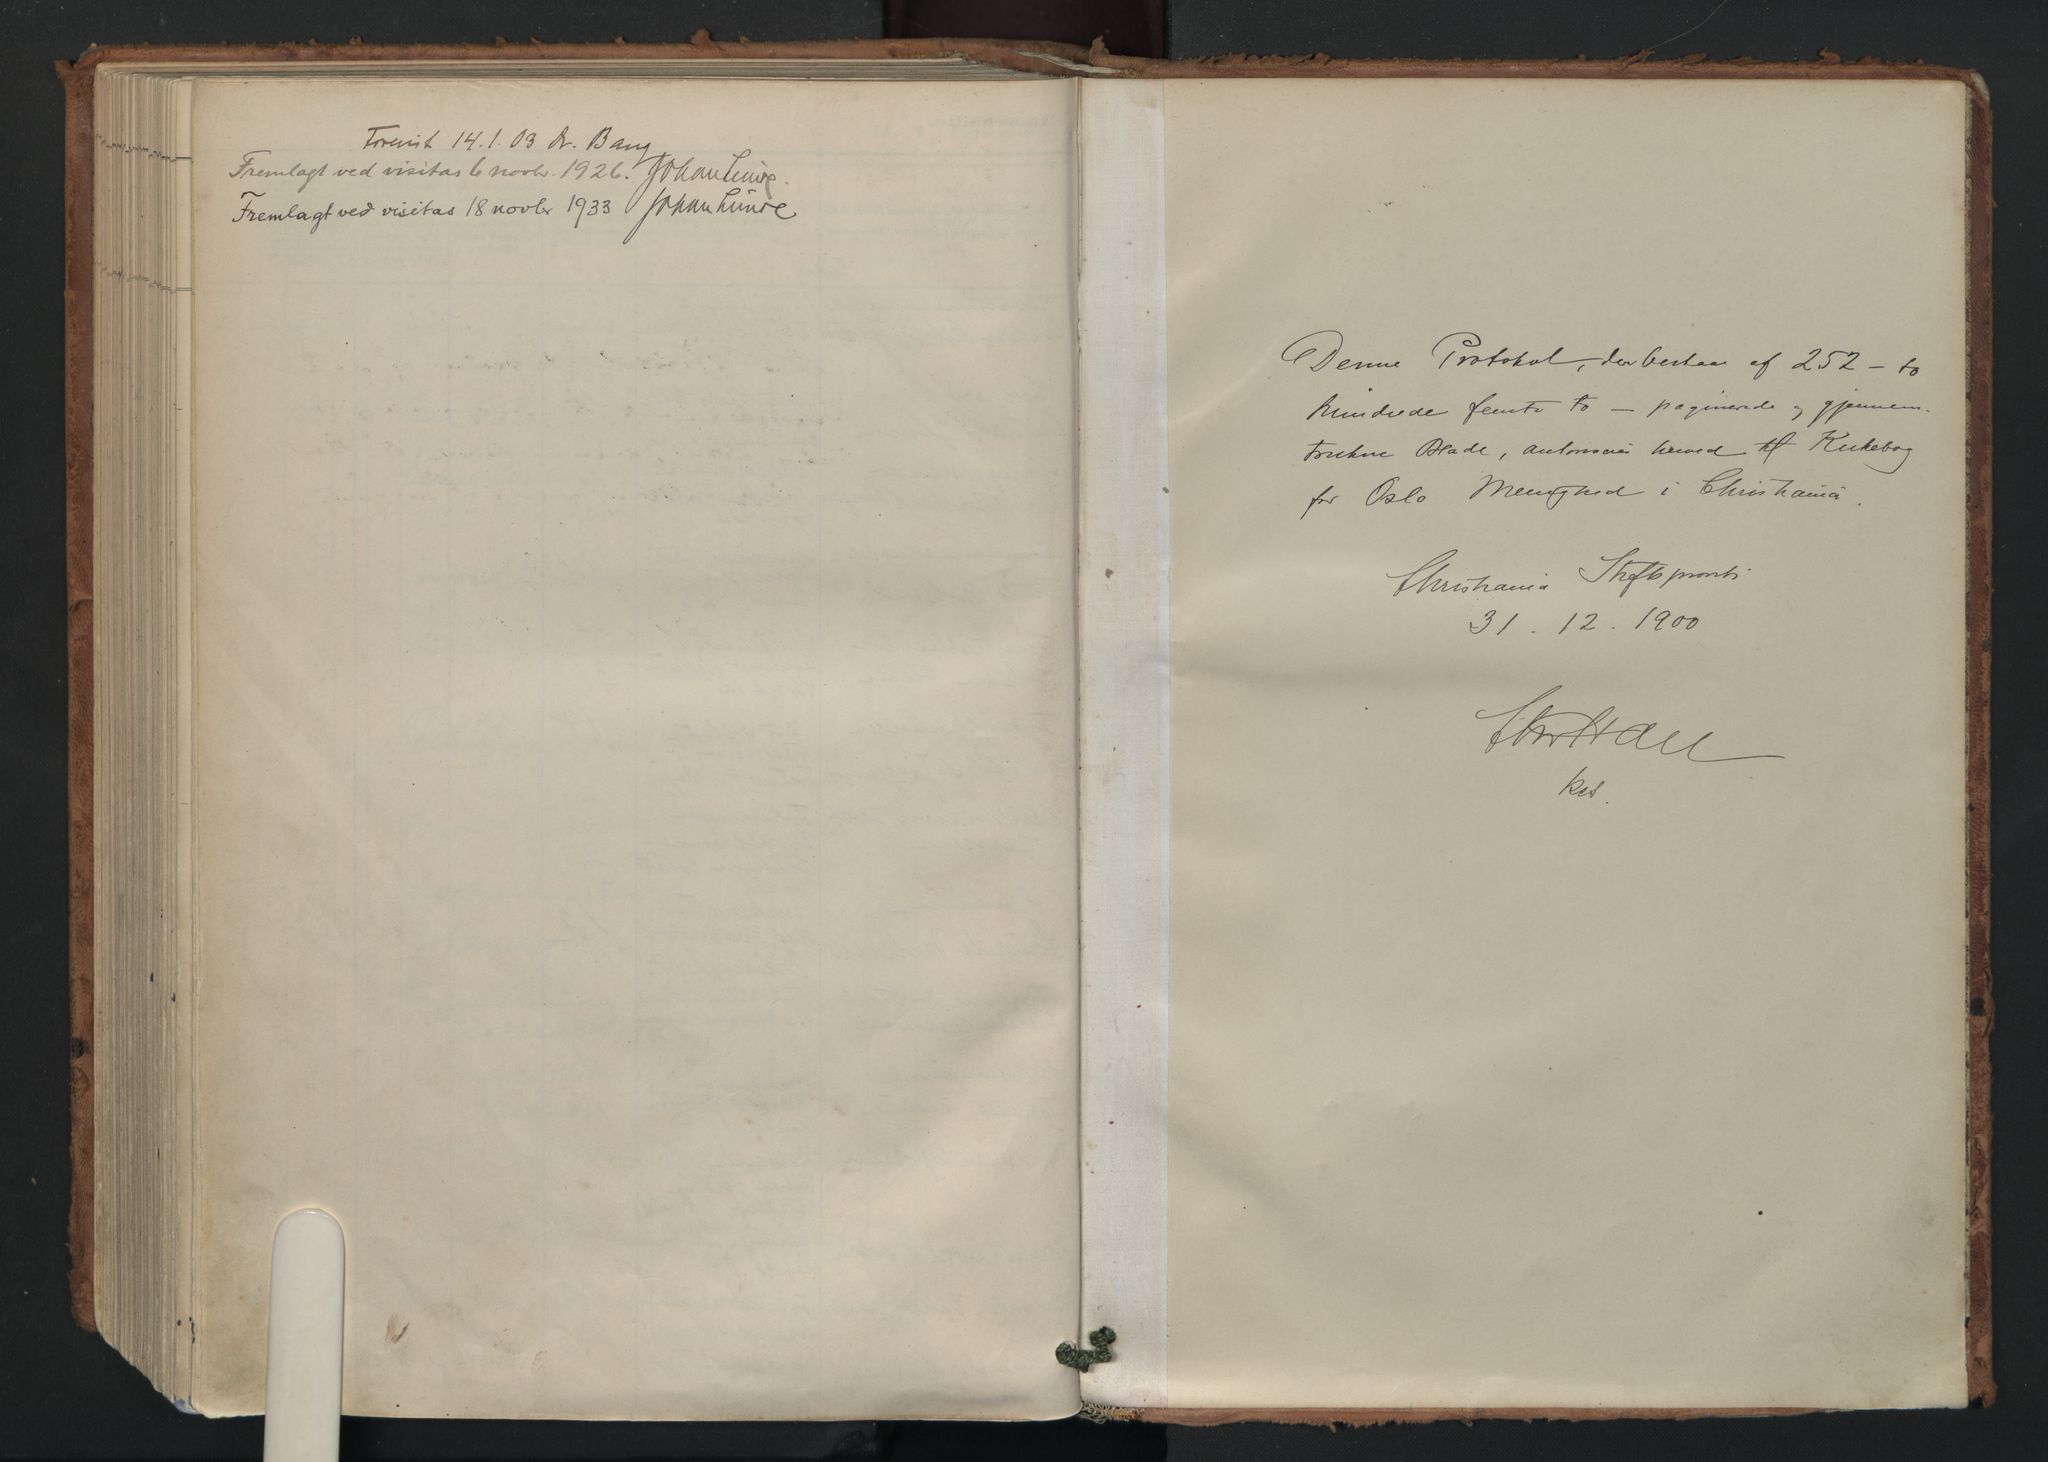 Forevist 14.1.03 Dr. Bang
Fremlagt ved visitas 6 novbr. 1926. Johan Lunde.
Fremlagt ved visitas 18 novbr 1933 Johan Lunde
Denne Protokol, der bestaar af 252 – to
hundrede femti to – paginerede og gjennem-
trukne Blade, autoriseres herved til Kirkebog
for Oslo Menighed i Christiania.
Christiania Stiftsprovsti
31.12.1900
kst.